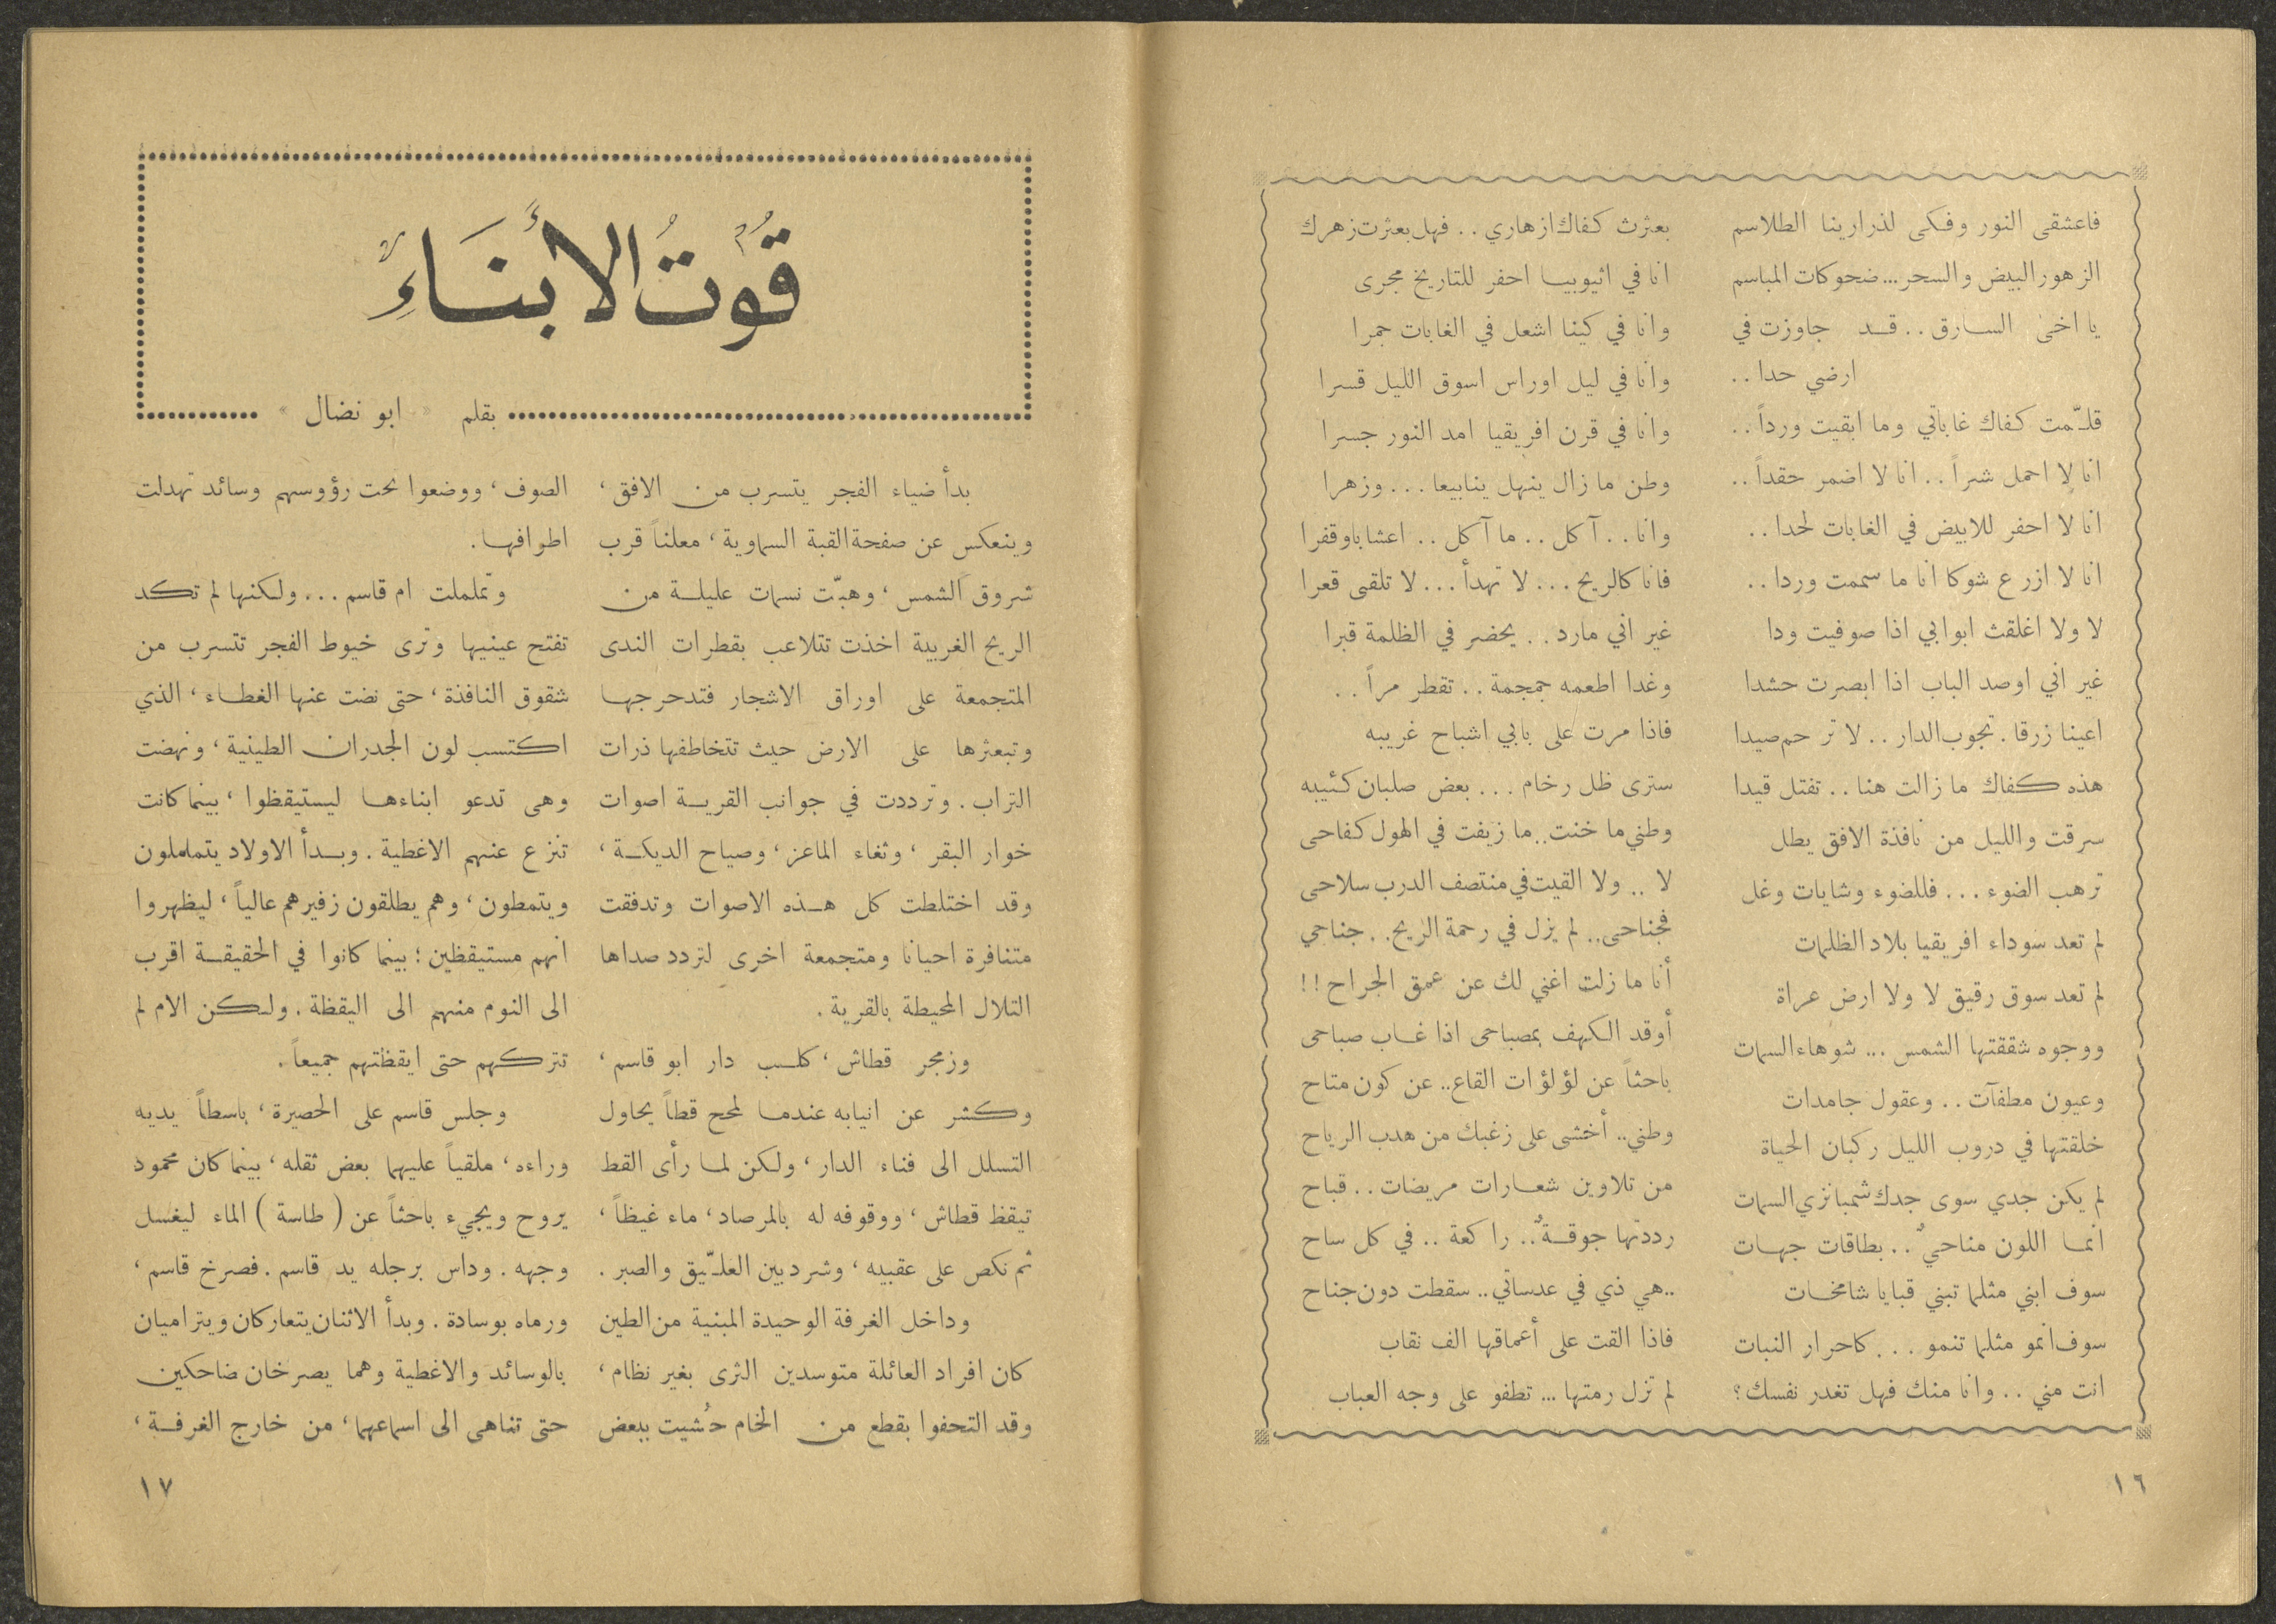 فاعشقى النور وفكى لذرارينا الطلاسم
الزهور البيض والسحر ... ضحوكات المباسم
يا اخى السارق .. قد جاوزت في
ارضي حدا ..
قلّمت كفاك غاباتي وما ابقيت ورداً ..
انا لا احمل شراً .. انا لا اضمر حقداً ..
انا لا احفر للابيض في الغابات لحدا ..
انا لا ازرع شوكا انا ما سممت وردا ..
لا ولا اغلقت ابوابي اذا صوفيت ودا
غير اني اوصد الباب اذا ابصرت حشدا
اعينا زرقا . تجوب الدار .. لا ترحم صيدا
هذه كفاك ما زالت هنا .. تفتل قيدا
سرقت والليل من نافذة الافق يطل
ترهب الضوء ... فللضوء وشايات وغل
لم تعد سوداء افريقيا بلاد الظلمات
لم تعد سوق رقيق لا ولا ارض عراة
ووجوه شققتها الشمس ... شوهاء السمات
وعيون مطفآت .. وعقول جامدات
خلقتها في دروب الليل ركبان الحياة
لم يكن جدي سوى جدك شمبانزي السمات
انما اللون مناحيٌ .. بطاقات جهات
سوف ابني مثلما تبني قبايا شامخات
سوف انمو مثلما تنمو ... كاحرار النبات
انت مني .. وانا منك فهل تغدر نفسك ؟
بعثرث كفاك ازهاري .. فهل بعثرت زهرك
انا في اثيوبيا احفر للتاريخ مجرى
وانا في كينا اشعل في الغابات جمرا
وانا في ليل اوراس اسوق الليل قسرا
وانا في قرن افريقيا امد النور جسرا
وطن ما زال ينهل ينابيعا ... وزهرا
وانا .. آكل .. ما آكل .. اعشابا وقفرا
فانا كالريح ... لا تهدأ ... لا تلقى قعرا
غير اني مارد .. يحضر في الظلمة قبرا
وغدا اطعمه جمجمة .. تقطر مراً ..
فاذا مرت على بابي اشباح غريبه
سترى ظل رخام ... بعض صلبان كئيبه
وطني ما خنت .. ما زيفت في الهول كفاحى
لا .. ولا القيت في منتصف الدرب سلاحى
فجناحى .. لم يزل في رحمة الريح .. جناحي
أنا ما زلت اغني لك عن عمق الجراح !!
أوقد الكهف بمصباحى اذا غاب صباحى
باحثاً عن لؤلؤات القاع .. عن كون متاح
وطني .. أخشى على زغبك من هدب الرياح
من تلاوين شعارات مريضات .. قباح
رددتها جوقةٌ .. راكعة .. في كل ساح
.. هي ذي في عدساتي .. سقطت دون جناح
فاذا القت على أعماقها الف نقاب
لم تزل رمتها ... تطفو على وجه العباب
١٦
قُوْتُ الأبنَاءِ
بقلم « ابو نضال »
بدأ ضياء الفجر يتسرب من الافق ،
وينعكس عن صفحة القبة السماوية ، معلناً قرب
شروق الشمس ، وهبّت نسمات عليلة من
الريح الغربية اخذت تتلاعب بقطرات الندى
المتجمعة على اوراق الاشجار فتدحرجها
وتبعثرها على الارض حيث تتخاطفها ذرات
التراب . وترددت في جوانب القرية اصوات
خوار البقر ، وثغاء الماعز ، وصياح الديكة ،
وقد اختلطت كل هذه الاصوات وتدفقت
متنافرة احيانا ومتجمعة اخرى لتردد صداها
التلال المحيطة بالقرية .
وزمجر قطاش ، كلب دار ابو قاسم ،
وكشر عن انيابه عندما لمح قطاً يحاول
التسلل الى فناء الدار ، ولكن لما رأى القط
تيقظ قطاش ، ووقوفه له بالمرصاد ، ماء غيظاً ،
ثم نكص على عقبيه ، وشرد بين العلّيق والصبر .
وداخل الغرفة الوحيدة المبنية من الطين
كان افراد العائلة متوسدين الثرى بغير نظام ،
وقد التحفوا بقطع من الخام حُشيت ببعض
الصوف ، ووضعوا تحت رؤوسهم وسائد تهدلت
اطرافها .
وتململت ام قاسم ... ولكنها لم تكد
تفتح عينيها وترى خيوط الفجر تتسرب من
شقوق النافذة ، حتى نضت عنها الغطاء ، الذي
اكتسب لون الجدران الطينية ، ونهضت
وهى تدعو ابناءها ليستيقظوا ، بينما كانت
تنزع عنهم الاغطية . وبدأ الاولاد يتململون
ويتمطون ، وهم يطلقون زفيرهم عالياً ، ليظهروا
انهم مستيقظين ؛ بينما كانوا في الحقيقة اقرب
الى النوم منهم الى اليقظة . ولكن الام لم
تتركهم حتى ايقظتهم جميعاً .
وجلس قاسم على الحصيرة ، باسطاً يديه
وراءه ، ملقياً عليهما بعض ثقله ، بينما كان محمود
يروح ويجيء باحثاً عن ( طاسة ) الماء ليغسل
وجهه . وداس برجله يد قاسم . فصرخ قاسم ،
ورماه بوسادة . وبدأ الاثنان يتعاركان ويتراميان
بالوسائد والاغطية وهما يصرخان ضاحكين
حتى تناهى الى اسماعهما ، من خارج الغرفة ،
١٧